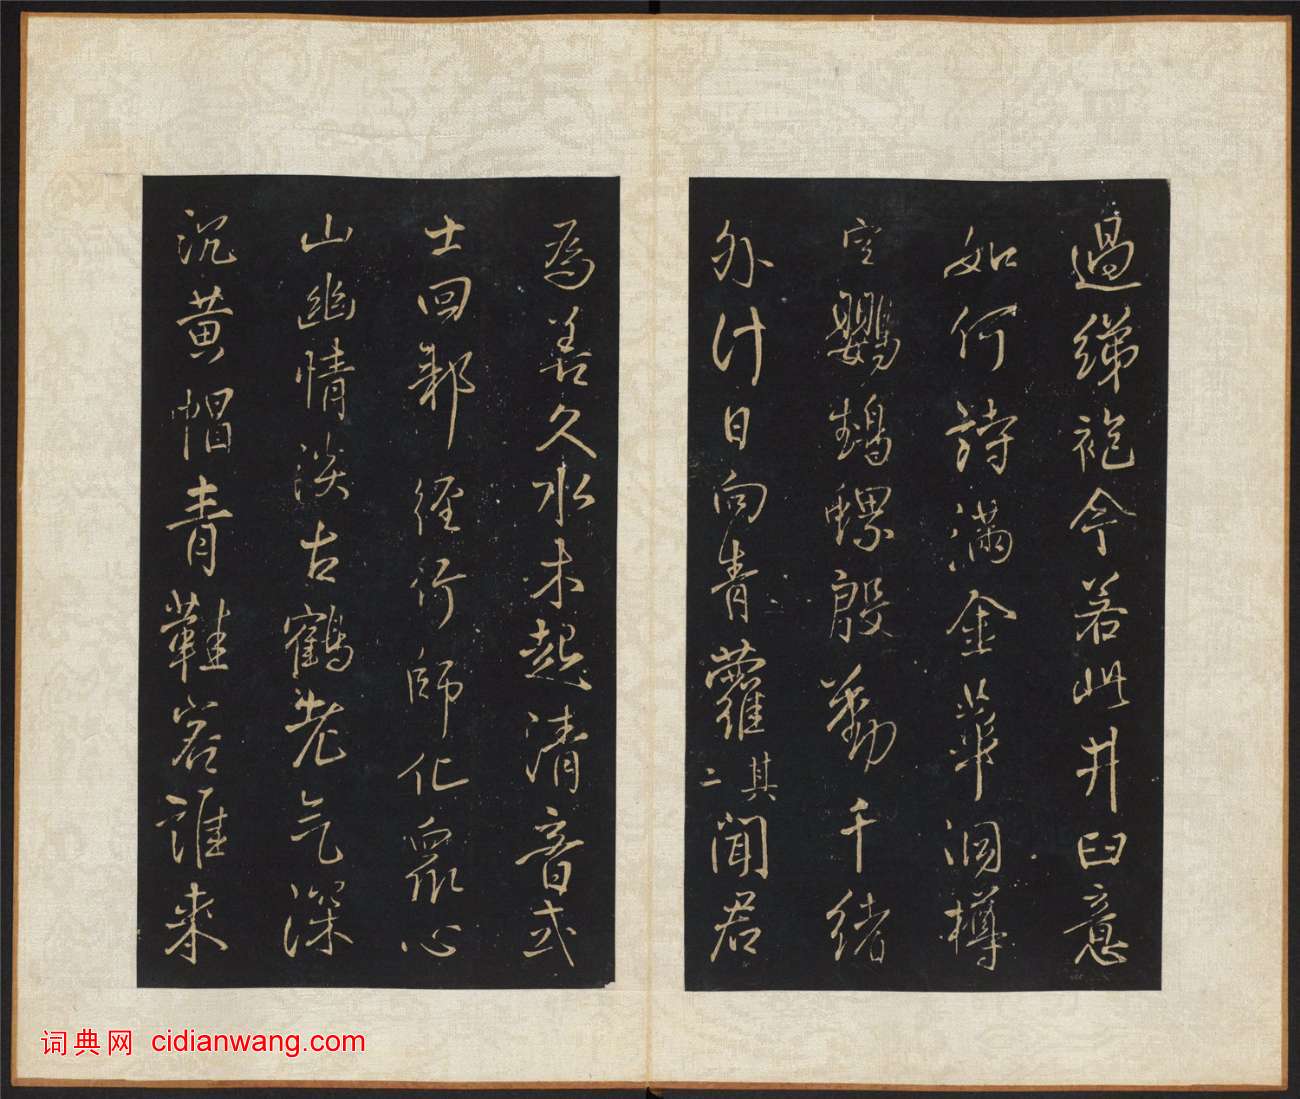 過綈袍今若此井臼意
如何詩滿金華洞樽
空鸚鵡螺殷勤千緒
外計日向青蘿其二聞君
為善久水木起清音
士回鄰徑行師化眾心
山幽情淡古鶴老氣深
沉黃帽青鞋客誰來
词典网 cidianwang.com